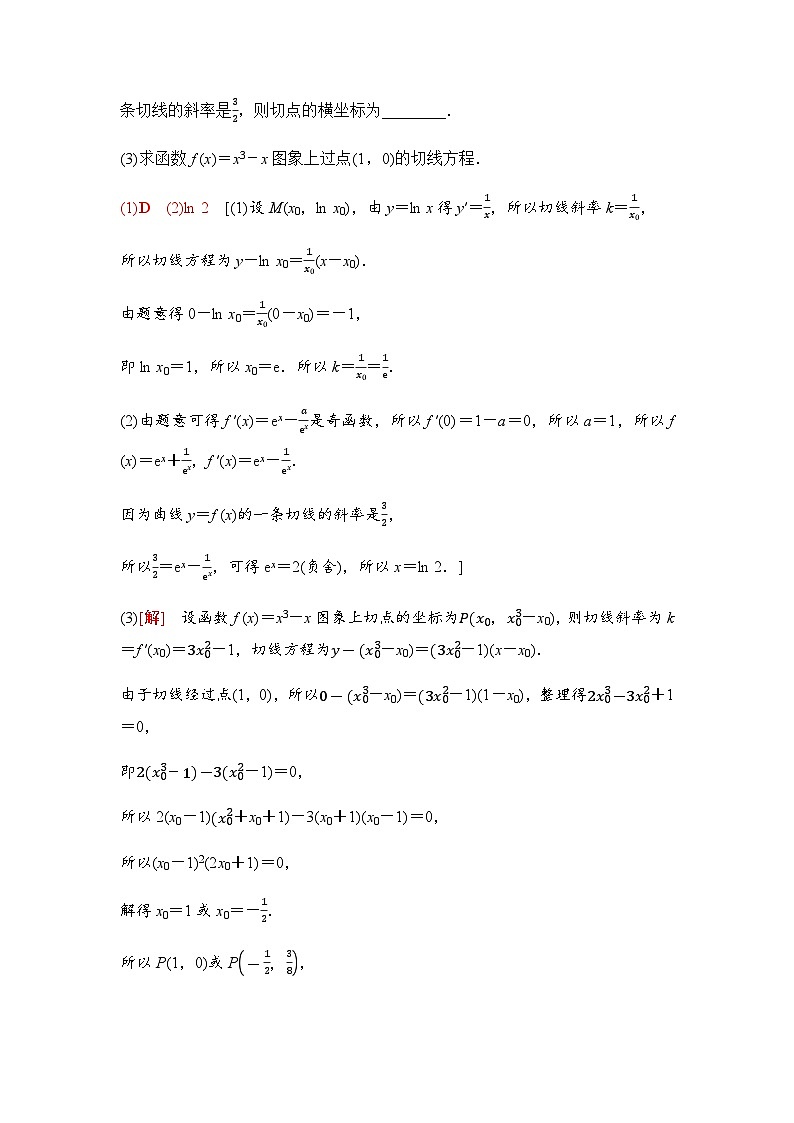 条切线的斜率是3/2，则切点的横坐标为________．
(3)求函数 f (x)＝x³－x 图象上过点(1，0)的切线方程．
(1)D (2)ln 2 [(1)设 M(x₀，ln x₀)，由 y＝ln x 得 y′＝1/x，所以切线斜率 k＝1/x₀，
所以切线方程为 y－ln x₀＝1/x₀(x－x₀)．
由题意得 0－ln x₀＝1/x₀(0－x₀)＝－1，
即 ln x₀＝1，所以 x₀＝e．所以 k＝1/x₀＝1/e.
(2)由题意可得 f ′(x)＝eˣ－a/eˣ是奇函数，所以 f ′(0)＝1－a＝0，所以 a＝1，所以 f
(x)＝eˣ＋1/eˣ，f ′(x)＝eˣ－1/eˣ.
因为曲线 y＝f (x)的一条切线的斜率是3/2，
所以3/2＝eˣ－1/eˣ，可得 eˣ＝2(负舍)，所以 x＝ln 2．]
(3)[解] 设函数 f (x)＝x³－x 图象上切点的坐标为P(x₀，x₀³－x₀)，则切线斜率为 k
＝f ′(x₀)＝3x₀²－1，切线方程为y－(x₀³－x₀)＝(3x₀²－1)(x－x₀)．
由于切线经过点(1，0)，所以0－(x₀³－x₀)＝(3x₀²－1)(1－x₀)，整理得2x₀³－3x₀²＋1
＝0，
即2(x₀³－1)－3(x₀²－1)＝0，
所以 2(x₀－1)(x₀²＋x₀＋1)－3(x₀＋1)(x₀－1)＝0，
所以(x₀－1)²(2x₀＋1)＝0，
解得 x₀＝1 或 x₀＝－1/2.
所以 P(1，0)或 P(－1/2，3/8)，